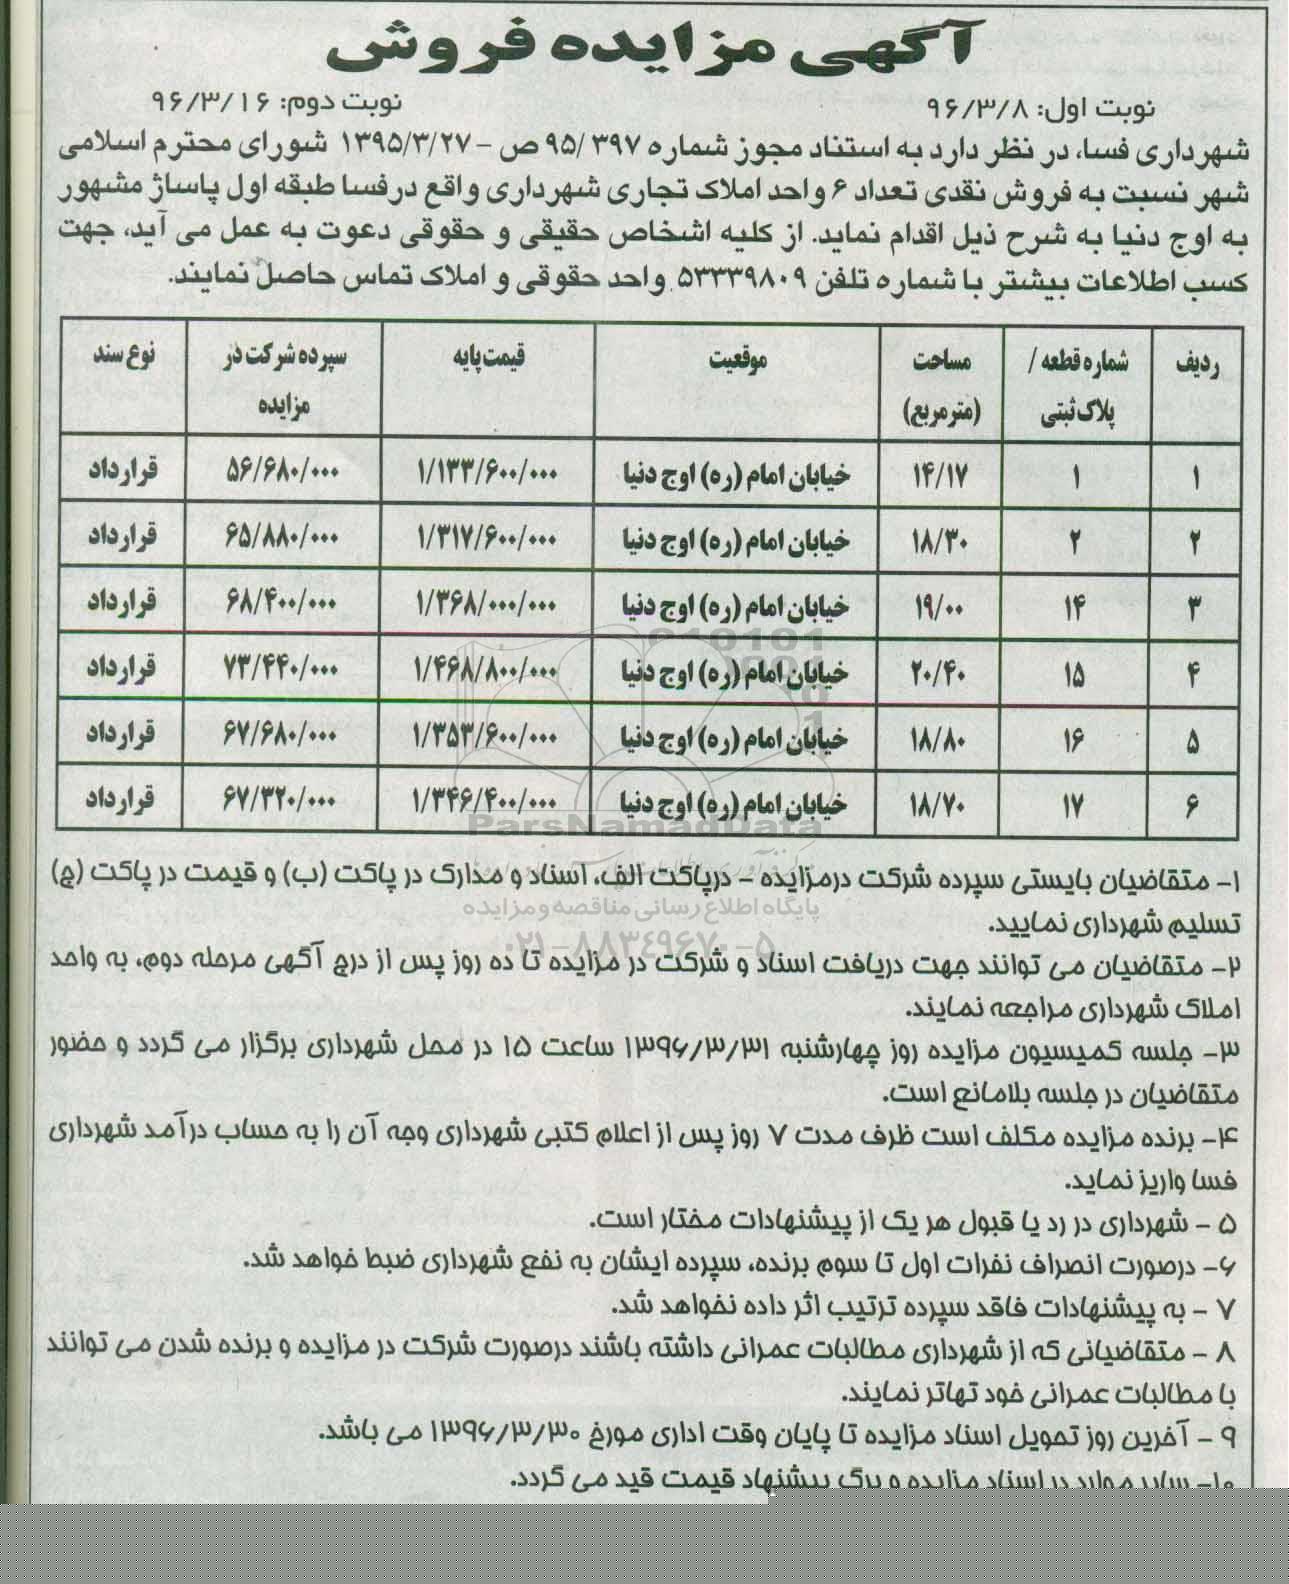 آگهی مزایده فروش
نوبت اول: ۹۶/۳/۸ نوبت دوم: ۹۶/۳/۱۶
شهرداری فسا، در نظر دارد به استناد مجوز شماره ۹۵/ ۳۹۷ ص - ۱۳۹۵/۳/۲۷ شورای محترم اسلامی
شهر نسبت به فروش نقدی تعداد ۶ واحد املاک تجاری شهرداری واقع در فسا طبقه اول پاساژ مشهور
به اوج دنیا به شرح ذیل اقدام نماید. از کلیه اشخاص حقیقی و حقوقی دعوت به عمل می آید، جهت
کسب اطلاعات بیشتر با شماره تلفن ۵۳۳۳۹۸۰۹ واحد حقوقی و املاک تماس حاصل نمایند.
ردیف شماره قطعه / پلاک ثبتی مساحت (مترمربع) موقعیت قیمت پایه سپرده شرکت در مزایده نوع سند
۱ ۱ ۱۴/۱۷ خیابان امام (ره) اوج دنیا ۱/۱۳۳/۶۰۰/۰۰۰ ۵۶/۶۸۰/۰۰۰ قرارداد
۲ ۲ ۱۸/۳۰ خیابان امام (ره) اوج دنیا ۱/۳۱۷/۶۰۰/۰۰۰ ۶۵/۸۸۰/۰۰۰ قرارداد
۳ ۱۴ ۱۹/۰۰ خیابان امام (ره) اوج دنیا ۱/۳۶۸/۰۰۰/۰۰۰ ۶۸/۴۰۰/۰۰۰ قرارداد
۴ ۱۵ ۲۰/۴۰ خیابان امام (ره) اوج دنیا ۱/۴۶۸/۸۰۰/۰۰۰ ۷۳/۴۴۰/۰۰۰ قرارداد
۵ ۱۶ ۱۸/۸۰ خیابان امام (ره) اوج دنیا ۱/۳۵۳/۶۰۰/۰۰۰ ۶۷/۶۸۰/۰۰۰ قرارداد
۶ ۱۷ ۱۸/۷۰ خیابان امام (ره) اوج دنیا ۱/۳۴۶/۴۰۰/۰۰۰ ۶۷/۳۲۰/۰۰۰ قرارداد
ParsNamadData
۱- متقاضیان بایستی سپرده شرکت درمزایده - درپاکت الف، اسناد و مدارک در پاکت (ب) و قیمت در پاکت (ج)
پایگاه اطلاع رسانی مناقصه و مزایده
تسلیم شهرداری نمایید.
۰۲۱-۸۸۳۴۹۶۷۰-۵
۲- متقاضیان می توانند جهت دریافت اسناد و شرکت در مزایده تا ده روز پس از درج آگهی مرحله دوم، به واحد
املاک شهرداری مراجعه نمایند.
۳- جلسه کمیسیون مزایده روز چهارشنبه ۱۳۹۶/۳/۳۱ ساعت ۱۵ در محل شهرداری برگزار می گردد و حضور
متقاضیان در جلسه بلامانع است.
۴- برنده مزایده مکلف است ظرف مدت ۷ روز پس از اعلام کتبی شهرداری وجه آن را به حساب درآمد شهرداری
فسا واریز نماید.
۵ - شهرداری در رد یا قبول هر یک از پیشنهادات مختار است.
۶- درصورت انصراف نفرات اول تا سوم برنده، سپرده ایشان به نفع شهرداری ضبط خواهد شد.
۷ - به پیشنهادات فاقد سپرده ترتیب اثر داده نخواهد شد.
۸ - متقاضیانی که از شهرداری مطالبات عمرانی داشته باشند درصورت شرکت در مزایده و برنده شدن می توانند
با مطالبات عمرانی خود تهاتر نمایند.
۹ - آخرین روز تحویل اسناد مزایده تا پایان وقت اداری مورخ ۱۳۹۶/۳/۳۰ می باشد.
۱۰- سایر موارد در اسناد مزایده و برگ پیشنهاد قیمت قید می گردد.